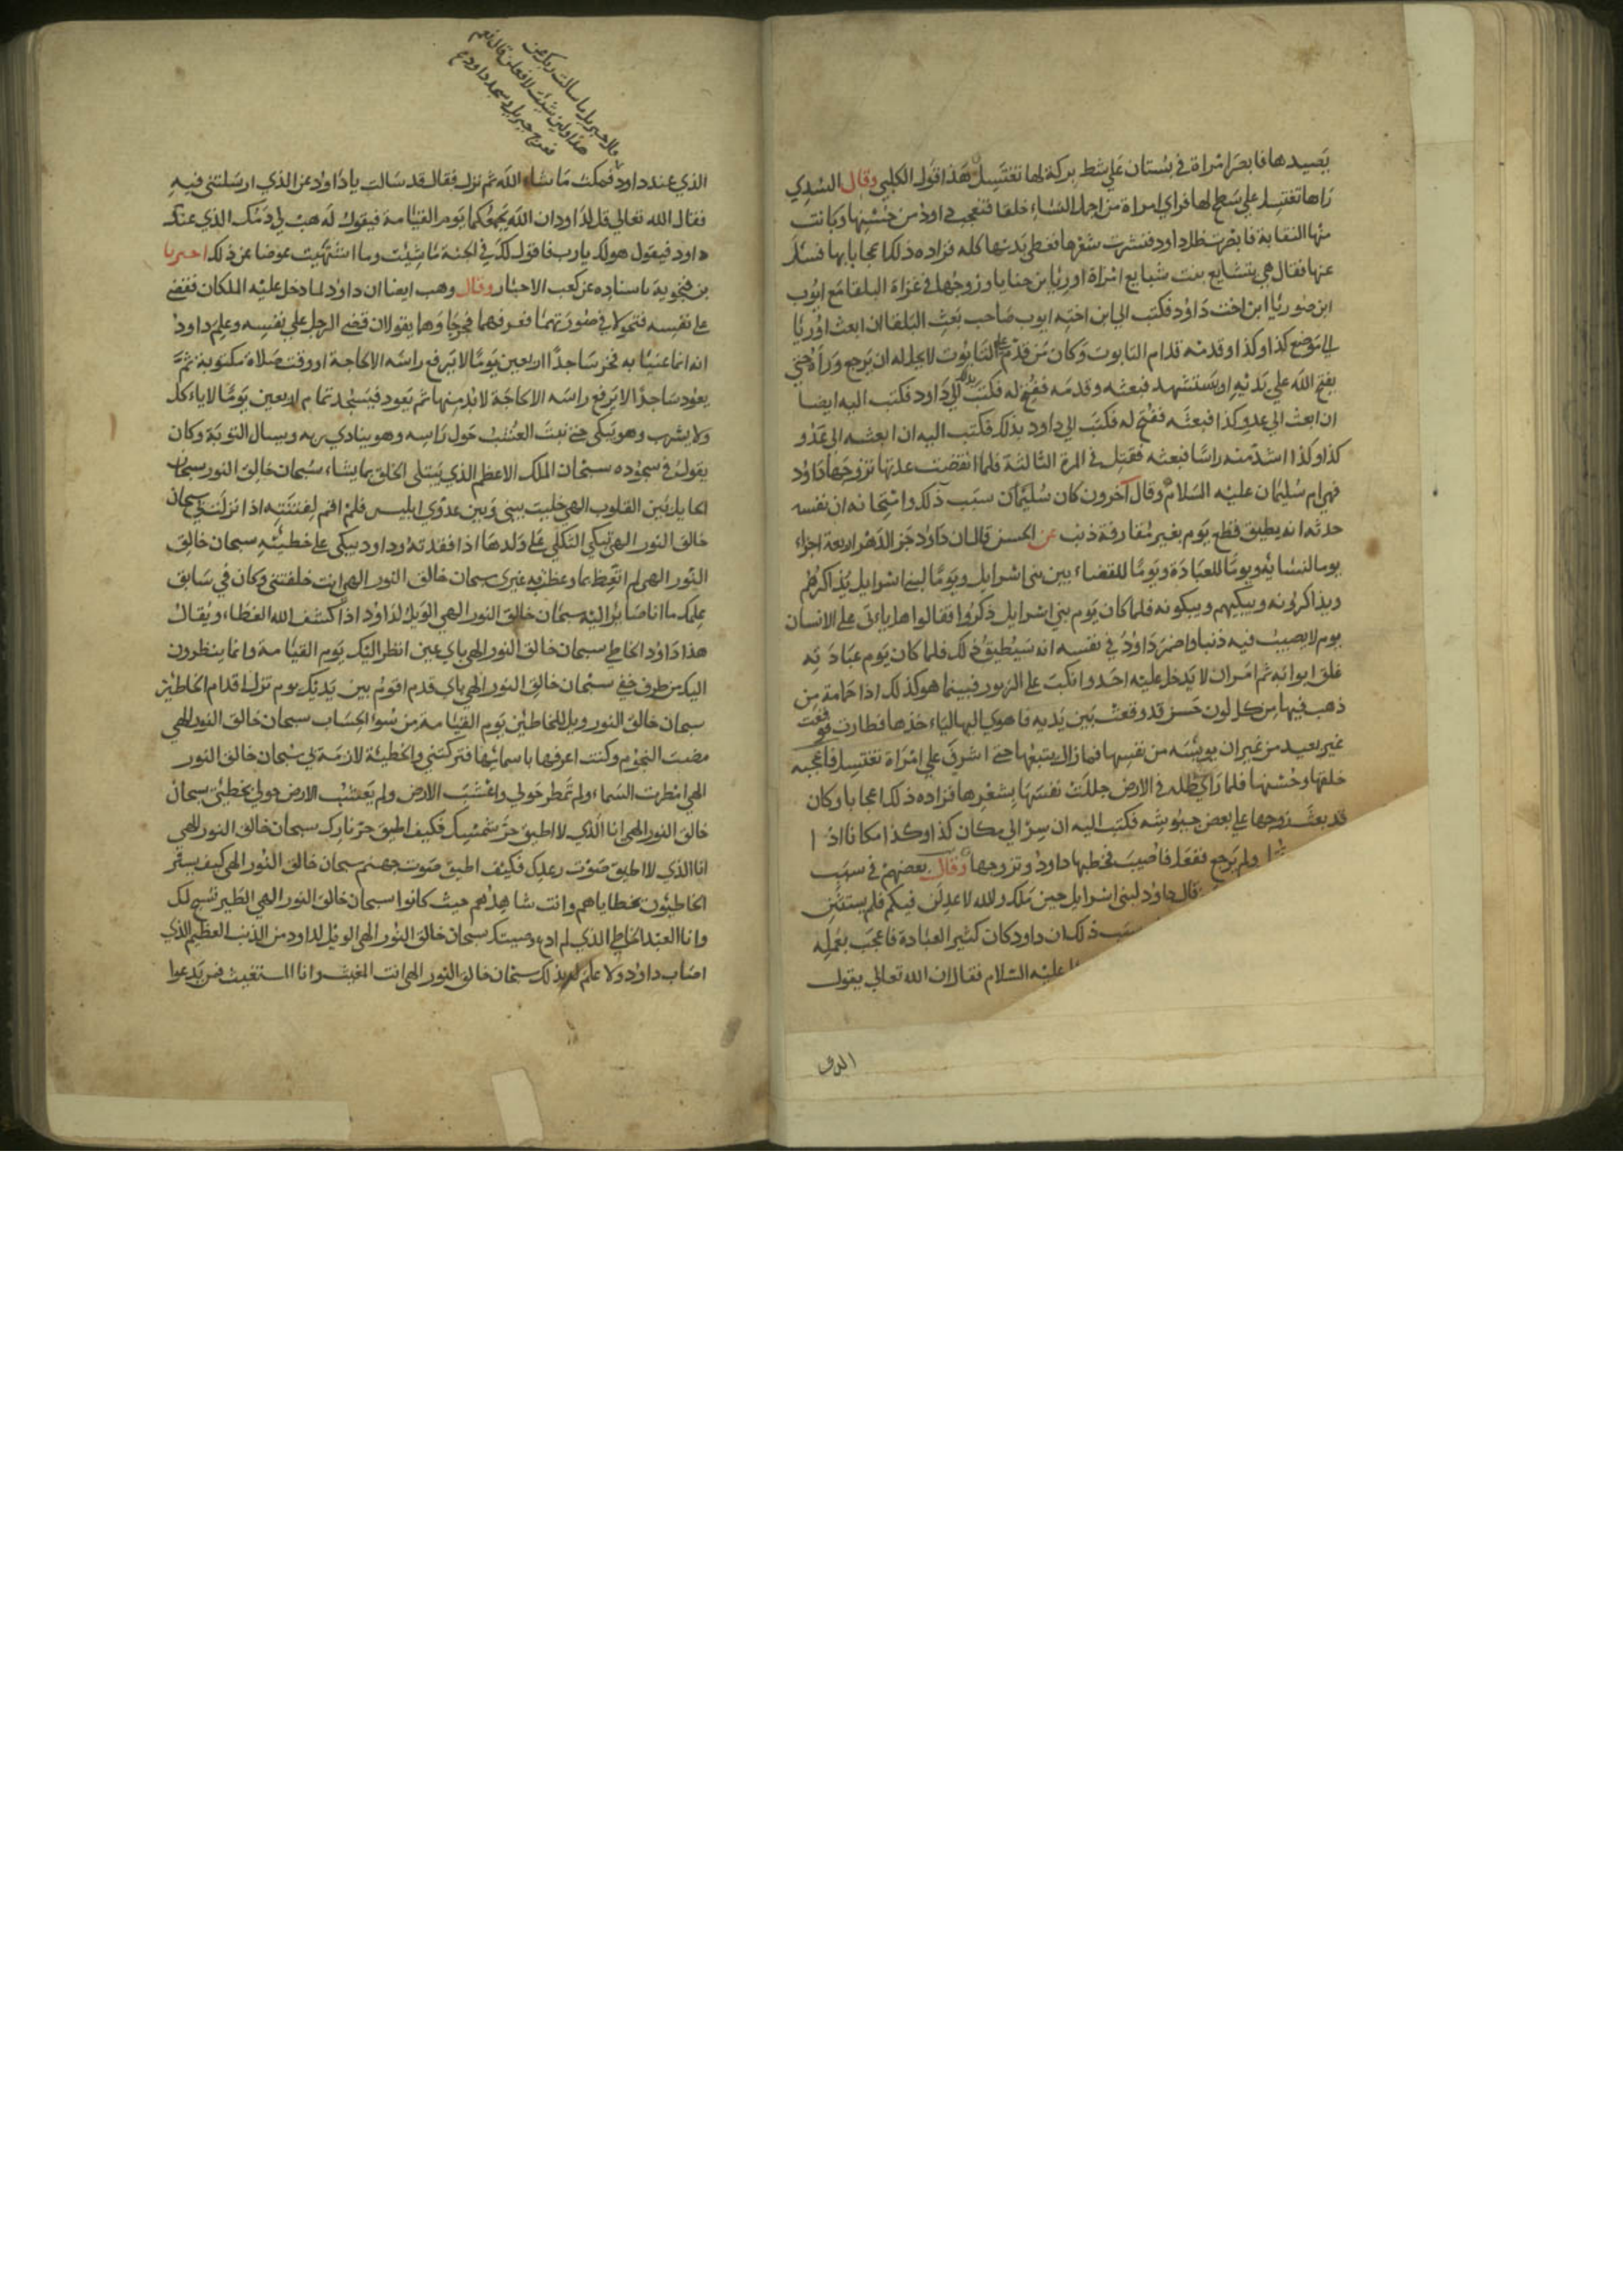 يصيدها فابصر امراة في بستان علي شط بركة لها تغتسل هذا قول الكلبي وقال السدي
راها تغتسل علي سطح لها فراي امراة من اجمل النساء خلقا فتعجب داود من حسنها وحانت
منها التفاتة فابصرت ظل داود فنشرت شعرها فغطي بدنها كله فزاده ذلك اعجابا بها فسال
عنها فقال هي بتشايع بنت شايع امراة اوريا بن حنايا وزوجها في غزاة البلقا مع ايوب
ابن صوريا ابن اخت داود فكتب الي ابن اخته ايوب صاحب بعث البلقا ان ابعث اوريا
الي موضع كذا وكذا وقدمه قدام التابوت وكان من قدم علي التابوت لا يحل له ان يرجع وراه حتي
يفتح الله علي يديه او يستشهد فبعثه وقدمه ففتح له فكتب الي داود فكتب اليه ايضا
ان ابعث الي عدو كذا فبعثه ففتح له فكتب الي داود بذلك فكتب اليه ان ابعثه الي عدو
كذا وكذا اشد منه باسا فبعثه فقتل في المرة الثالثة فلما انقضت عدتها تزوجها داود
فهي ام سليمان عليه السلام وقال آخرون كان سبب ذلك وامتحانه ان نفسه
حدثته انه يطيق قطع يوم بغير مقارفة ذنب عن الحسن قال ان داود جز الدهر اربعة اجزاء
يوما لنسايه ويوما للعبادة ويوما للقضاء بين بني اسرايل ويوما لبني اسرايل يذاكرهم
ويذاكرونه ويبكيهم ويبكونه فلما كان يوم بني اسرايل ذكروا فقالوا هل ياتي علي الانسان
يوم لا يصيب فيه ذنبا واضمر داود في نفسه انه سيطيق ذلك فلما كان يوم عبادته
غلق ابوابه ثم امر ان لا يدخل عليه احد وانكب علي الزبور فبينما هو كذلك اذا حمامة من
ذهب فيها من كل لون حسن قد وقعت بين يديه فاهوي اليها لياخذها فطارت فوقعت
غير بعيد من غير ان يويسه من نفسها فما زال يتبعها حتي اشرف علي امراة تغتسل فاعجبه
خلقها وحسنها فلما رات ظله في الارض جللت نفسها بشعرها فزاده ذلك اعجابا وكان
قد بعث زوجها علي بعض جيوشه فكتب اليه ان سر الي مكان كذا وكذا مكانا اذا
ولم يرجع ففعل فاصيب فخطبها داود وتزوجها وقال بعضهم في سبب
قال داود لبني اسرايل حين ملك والله لاعدلن فيكم فلم يستثن
سبب ذلك ان داود كان كثير العبادة فاعجب بعمله
عليه السلام فقال ان الله تعالي يقول
الذي
فلا جبريل ما سالت ربك عن
هذا ولين شيت لافعلن قال نعم
فعرج جبريل وسجد داود
الذي عند داود فمكث ما شاء الله ثم نزل فقال قد سالت يا داود عن الذي ارسلتني فيه
فقال الله تعالي قل لداود ان الله يجمعكما يوم القيامة فيقول له هب لي دمك الذي عند
داود فيقول هو لك يا رب فاقول لك في الجنة ما شيت وما اشتهيت عوضا عن ذلك اخبرنا
بن فنجوية باسناده عن كعب الاحبار وقال وهب ايضا ان داود لما دخل عليه الملكان فقضي
علي نفسه فتحولا في صورتهما فعرفهما فعرجا وهما يقولان قضي الرجل علي نفسه وعلم داود
انه انما عنيا به فخر ساجدا اربعين يوما لا يرفع راسه الا لحاجة او وقت صلاة مكتوبة ثم
يعود ساجدا لا يرفع راسه الا لحاجة لا بد منها ثم يعود فيسجد تمام اربعين يوما لا ياكل
ولا يشرب وهو يبكي حتي نبت العشب حول راسه وهو ينادي ربه ويسال التوبة وكان
يقول في سجوده سبحان الملك الاعظم الذي يبتلي الخلق بما يشاء سبحان خالق النور سبحان
الحايل بين القلوب الهي خليت بيني وبين عدوي ابليس فلم اقم لفتنته اذ نزلت بي سبحان
خالق النور الهي تبكي الثكلي علي ولدها اذا فقدته وداود يبكي علي خطيئته سبحان خالق
النور الهي لم اتعظ بما وعظت به غيري سبحان خالق النور الهي انت خلقتني وكان في سابق
علمك ما انا صاير اليه سبحان خالق النور الهي الويل لداود اذا كشف الله الغطاء ويقال
هذا داود الخاطي سبحان خالق النور الهي باي عين انظر اليك يوم القيامة وانما ينظرون
اليك من طرف خفي سبحان خالق النور الهي باي قدم اقوم بين يديك يوم تزل اقدام الخاطين
سبحان خالق النور ويل للخاطين يوم القيامة من سوء الحساب سبحان خالق النور الهي
مضت النجوم وكنت اعرفها باسمايها فتركتني والخطيئة لازمة لي سبحان خالق النور
الهي امطرت السماء ولم تمطر حولي واعشبت الارض ولم يعشب الارض حولي بخطيتي سبحان
خالق النور الهي انا الذي لا اطيق حر شمسك فكيف اطيق حر نارك سبحان خالق النور الهي
انا الذي لا اطيق صوت رعدك فكيف اطيق صوت جهنم سبحان خالق النور الهي كيف يستتر
الخاطيون بخطاياهم وانت شاهدهم حيث كانوا سبحان خالق النور الهي الطير تسبح لك
وانا العبد الخاطي الذي لم ارع وصيتك سبحان خالق النور الهي الويل لداود من الذنب العظيم الذي
اصاب داود ولا علم له بذلك سبحان خالق النور الهي انت المغيث وانا المستغيث فمن يدعوا